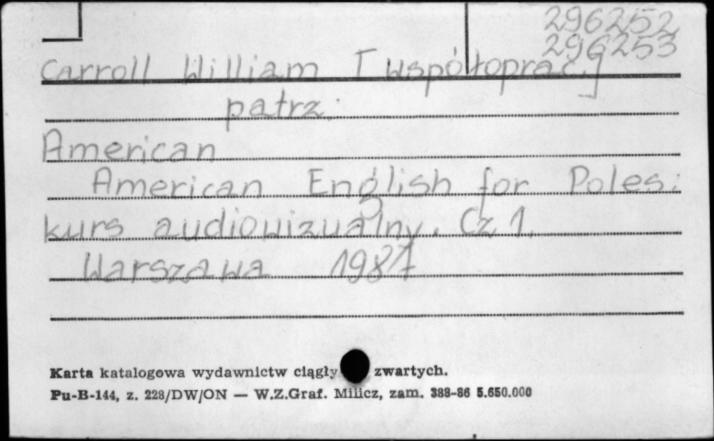 296252
296253
Carroll William [współoprac.]
patrz:
American
American English for Poles:
kurs audiowizualny. Cz 1.
Warszawa 1987
Karta katalogowa wydawnictw ciągły zwartych.
Pu-B-144, z. 228/DW/ON — W.Z.Graf. Milicz, zam. 388-86 5.650.000